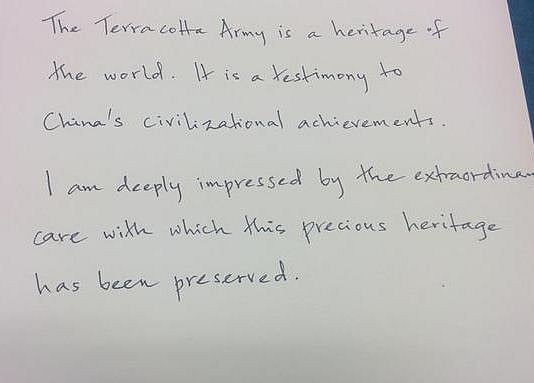 The Terracotta Army is a heritage of
the world. It is a testimony to
China's civilizational achievements.
I am deeply impressed by the extraordinar
care with which this precious heritage
has been preserved.